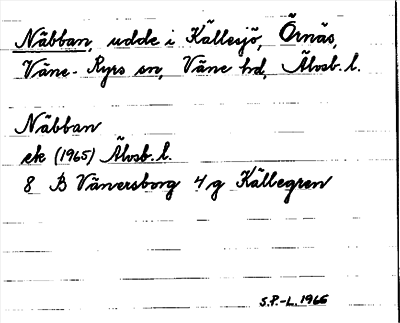 Näbban, udde i Källesjö, Örnäs,
Väne-Ryrs sn, Väne hd, Älvsb. l.
Näbban
ek (1965) Älvsb. l.
8 B Vänersborg 4 g Källegren
S.P.-L. 1965